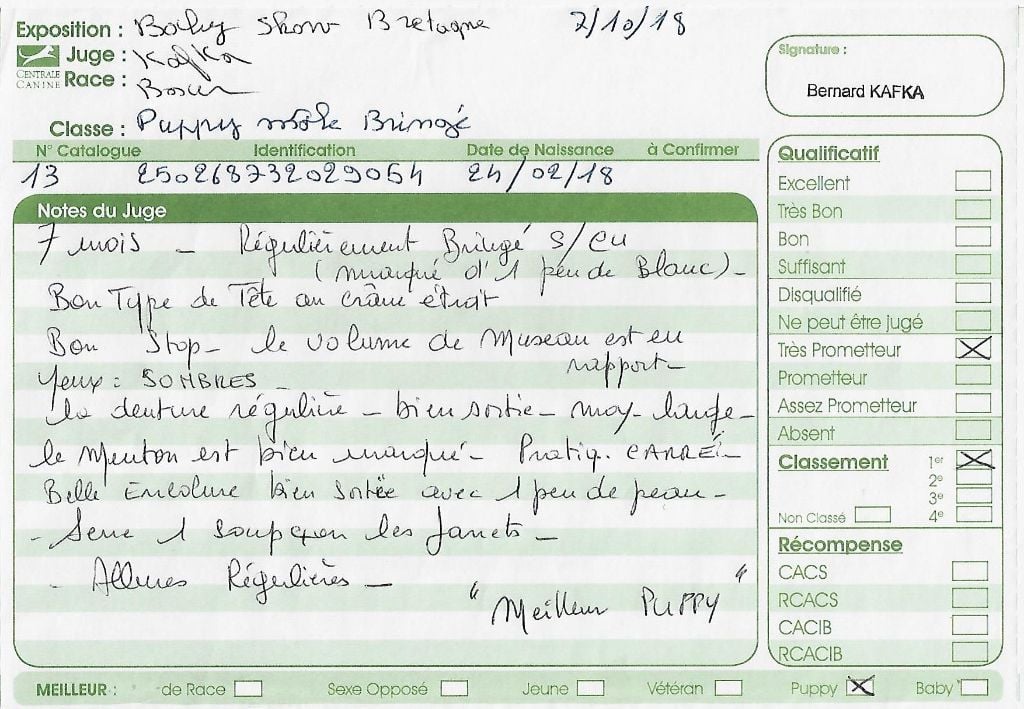 Exposition : Boxy Show Bretagne 7/10/18
Juge : Kafka
CENTRALE CANINE
Race : Boxer
Classe : Puppy mâle Bringé
Signature :
Bernard KAFKA
N° Catalogue Identification Date de Naissance à Confirmer
13 250268732029054 24/02/18
Notes du Juge
7 mois - Régulièrement Bringé S/
(marqué d'1 peu de Blanc) -
Bon Type de Tête au crâne étroit
Bon Stop - le volume de Museau est en
rapport -
Yeux : SOMBRES -
la denture régulière - bien sortie - moy. large -
le Menton est bien marqué - Pratiq. CARRÉ -
Belle Encolure bien sortée avec 1 peu de peau -
- Serre 1 soupçon les Jarrets -
- Allures Régulières -
" Meilleur PUPPY "
Qualificatif
Excellent
Très Bon
Bon
Suffisant
Disqualifié
Ne peut être jugé
Très Prometteur X
Prometteur
Assez Prometteur
Absent
Classement 1er X
2e
3e
Non Classé 4e
Récompense
CACS
RCACS
CACIB
RCACIB
MEILLEUR : de Race Sexe Opposé Jeune Vétéran Puppy X Baby